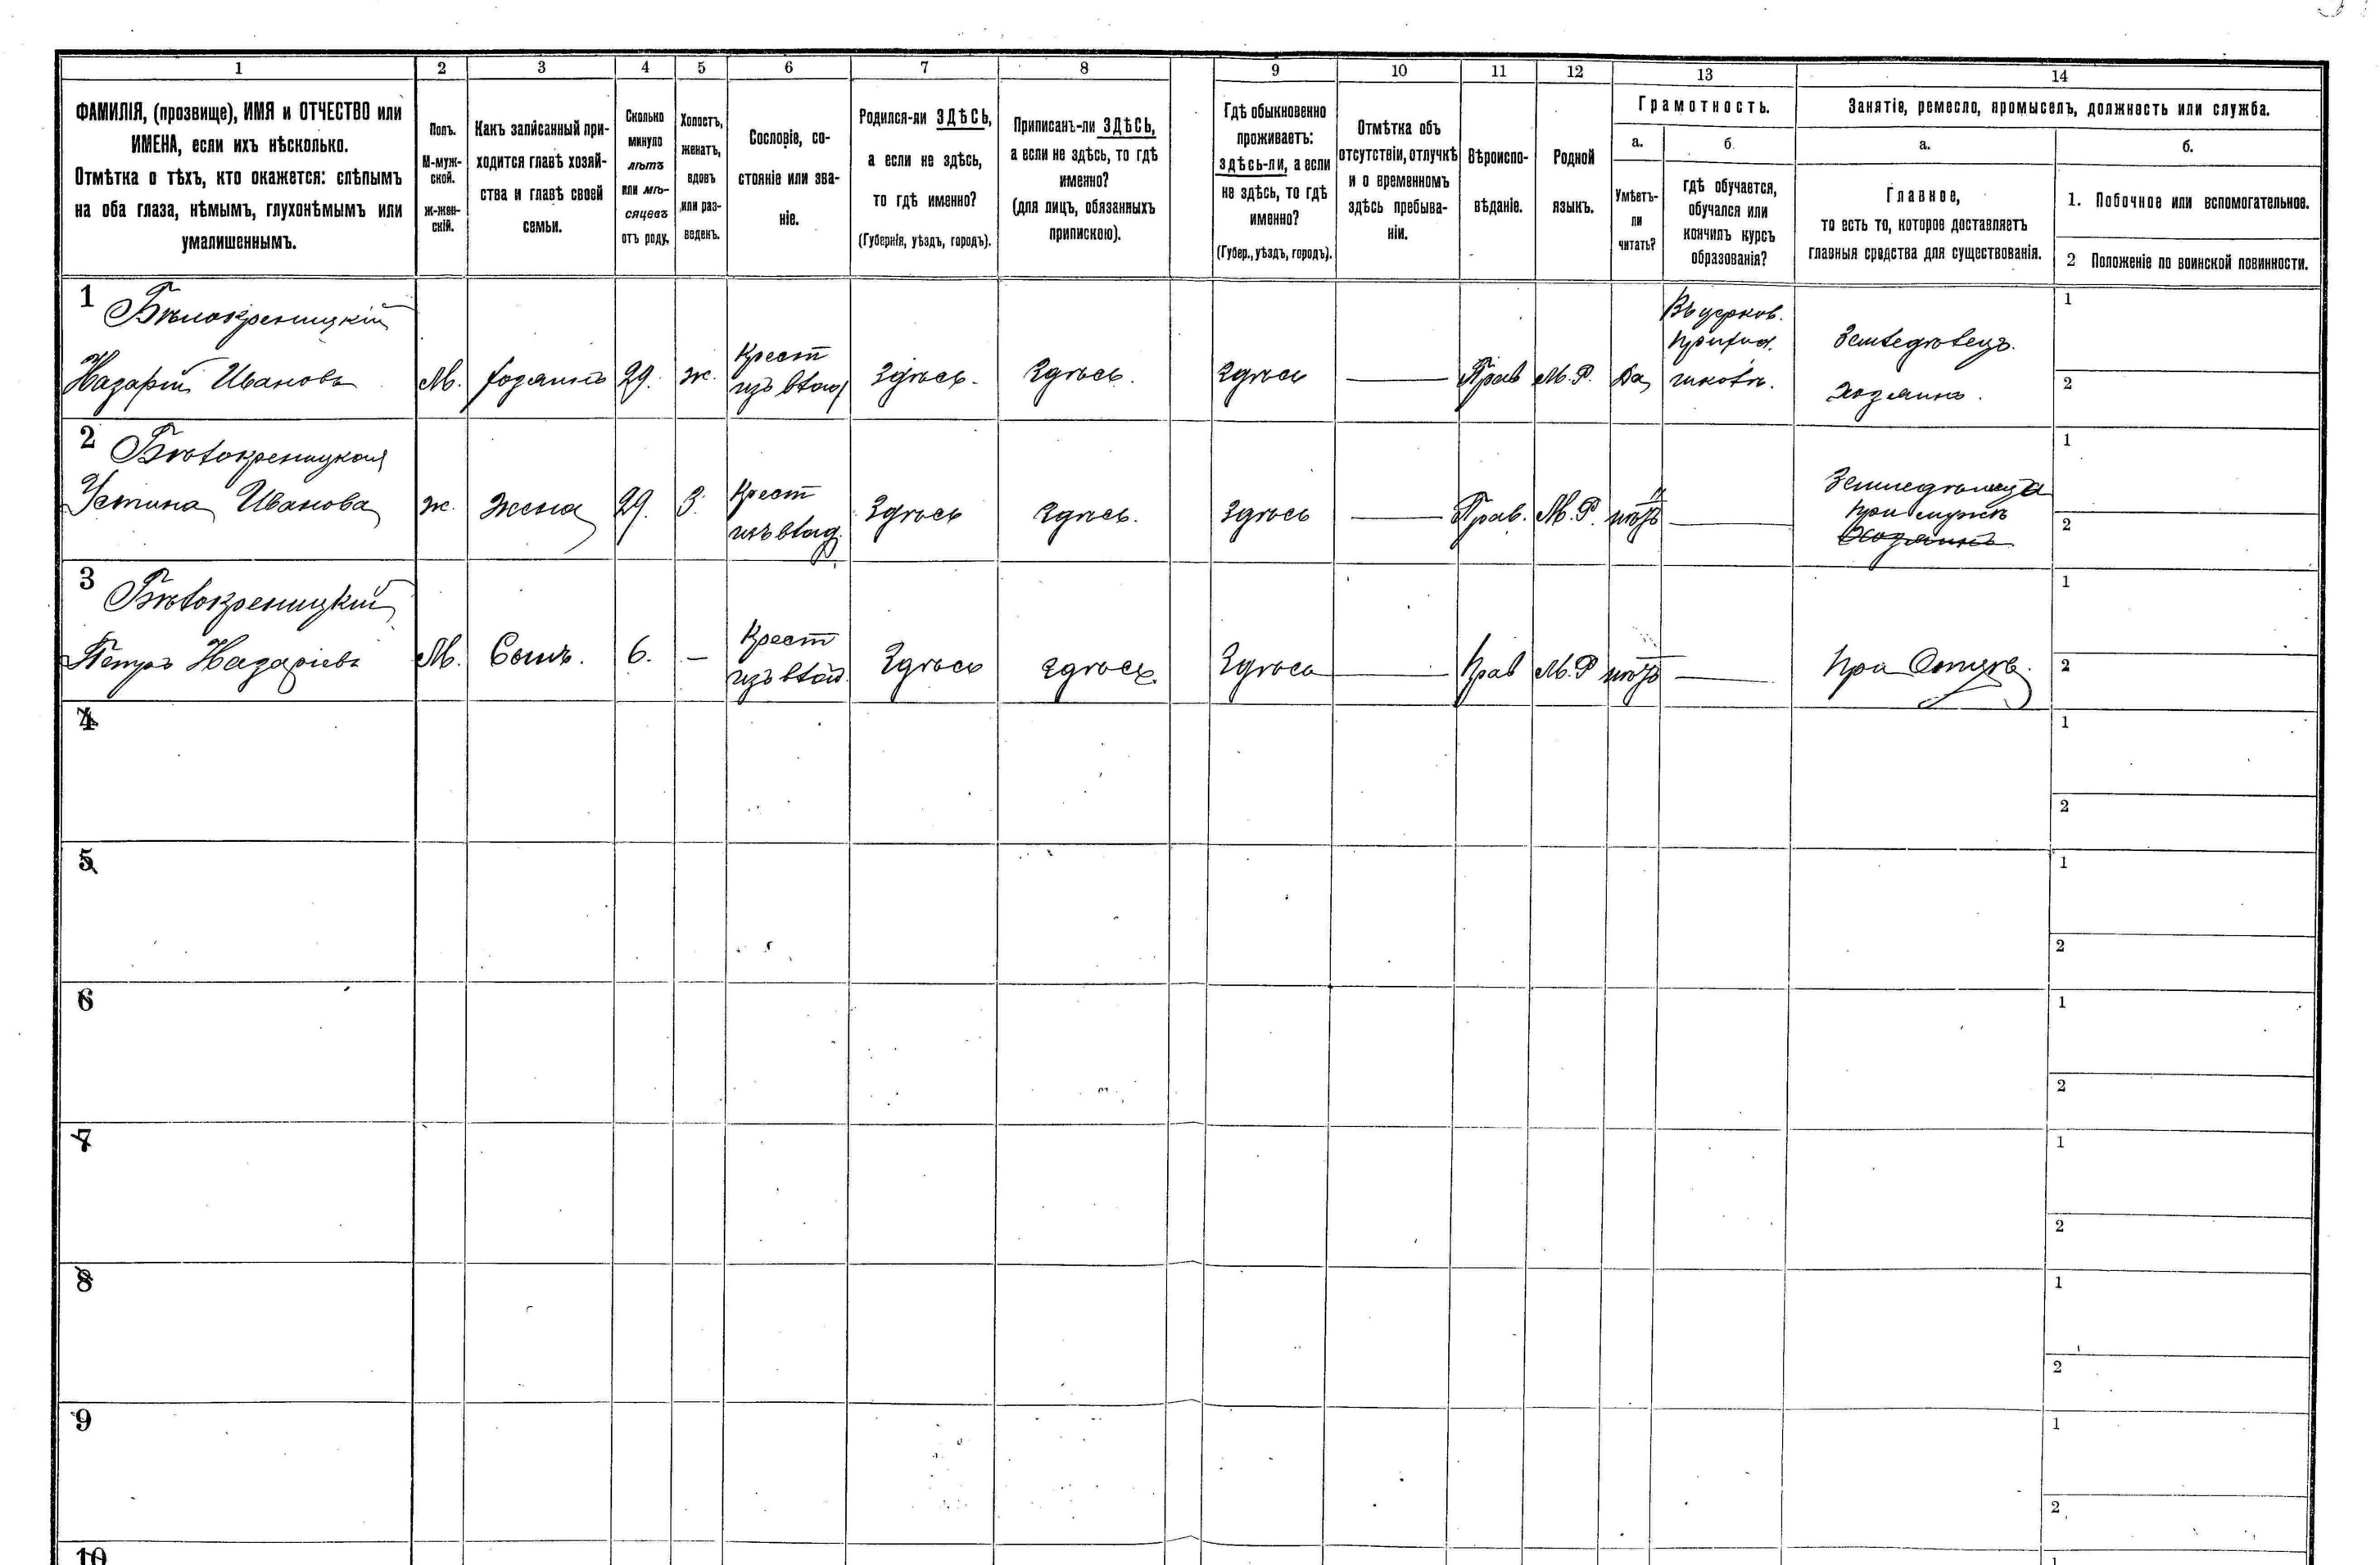 1 2 3 4 5 6 7 8 9 10 11 12 13 14
ФАМИЛІЯ, (прозвище), ИМЯ и ОТЧЕСТВО или
ИМЕНА, если ихъ нѣсколько.
Отмѣтка о тѣхъ, кто окажется: слѣпымъ
на оба глаза, нѣмымъ, глухонѣмымъ или
умалишеннымъ.
Полъ.
М-муж-
ской.
ж-жен-
скій.
Какъ записанный при-
ходится главѣ хозяй-
ства и главѣ своей
семьи.
Сколько
минуло
лѣтъ
или мѣ-
сяцевъ
отъ роду.
Холостъ,
женатъ,
вдовъ
или раз-
веденъ.
Сословіе, со-
стояніе или зва-
ніе.
Родился-ли ЗДѢСЬ,
а если не здѣсь,
то гдѣ именно?
(Губернія, уѣздъ, городъ).
Приписанъ-ли ЗДѢСЬ,
а если не здѣсь, то гдѣ
именно?
(для лицъ, обязанныхъ
припискою).
Гдѣ обыкновенно
проживаетъ:
здѣсь-ли, а если
не здѣсь, то гдѣ
именно?
(Губер., уѣздъ, городъ).
Отмѣтка объ
отсутствіи, отлучкѣ
и о временномъ
здѣсь пребыва-
ніи.
Вѣроиспо-
вѣданіе.
Родной
языкъ.
Грамотность.
а.
Умѣетъ-
ли
читать?
б.
гдѣ обучается,
обучался или
кончилъ курсъ
образованія?
Занятіе, ремесло, промыселъ, должность или служба.
а.
Главное,
то есть то, которое доставляетъ
главныя средства для существованія.
б.
1. Побочное или вспомогательное.
2 Положеніе по воинской повинности.
1
Бѣлокреницкій
Назарій Ивановъ
М.
хозяинъ
29.
ж.
Крест
изъ влад
Здѣсь.
Здѣсь.
Здѣсь
Прав
М. Р.
Да
Въ церков.
приход.
школѣ.
Земледѣлецъ.
Хозяинъ.
1
2
2
Бѣлокреницкая
Устина Иванова
ж.
Жена
29.
З.
Крест
изъ влад.
Здѣсь
Здѣсь.
Здѣсь
Прав.
М. Р.
нѣтъ
при мужѣ
Хозяинъ
1
2
3
Бѣлокреницкій
Петръ Назаріевъ
М.
Сынъ.
6.
—
Крест
изъ влад.
Здѣсь
Здѣсь.
Здѣсь
Прав
М. Р
нѣтъ
При Отцѣ.
1
2
4
1
2
5
1
2
6
1
2
7
1
2
8
1
2
9
1
2
10
1